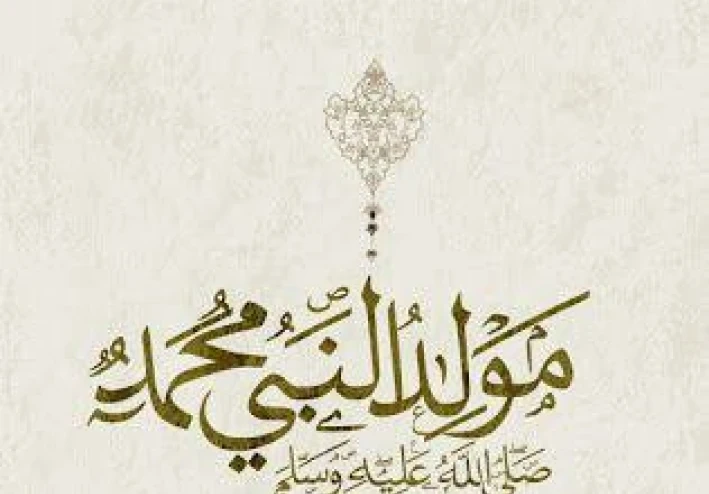 مَولِدُ النَّبِي مُحَمَّد
صَلَّى اللهُ عَلَيْهِ وَسَلَّمَ